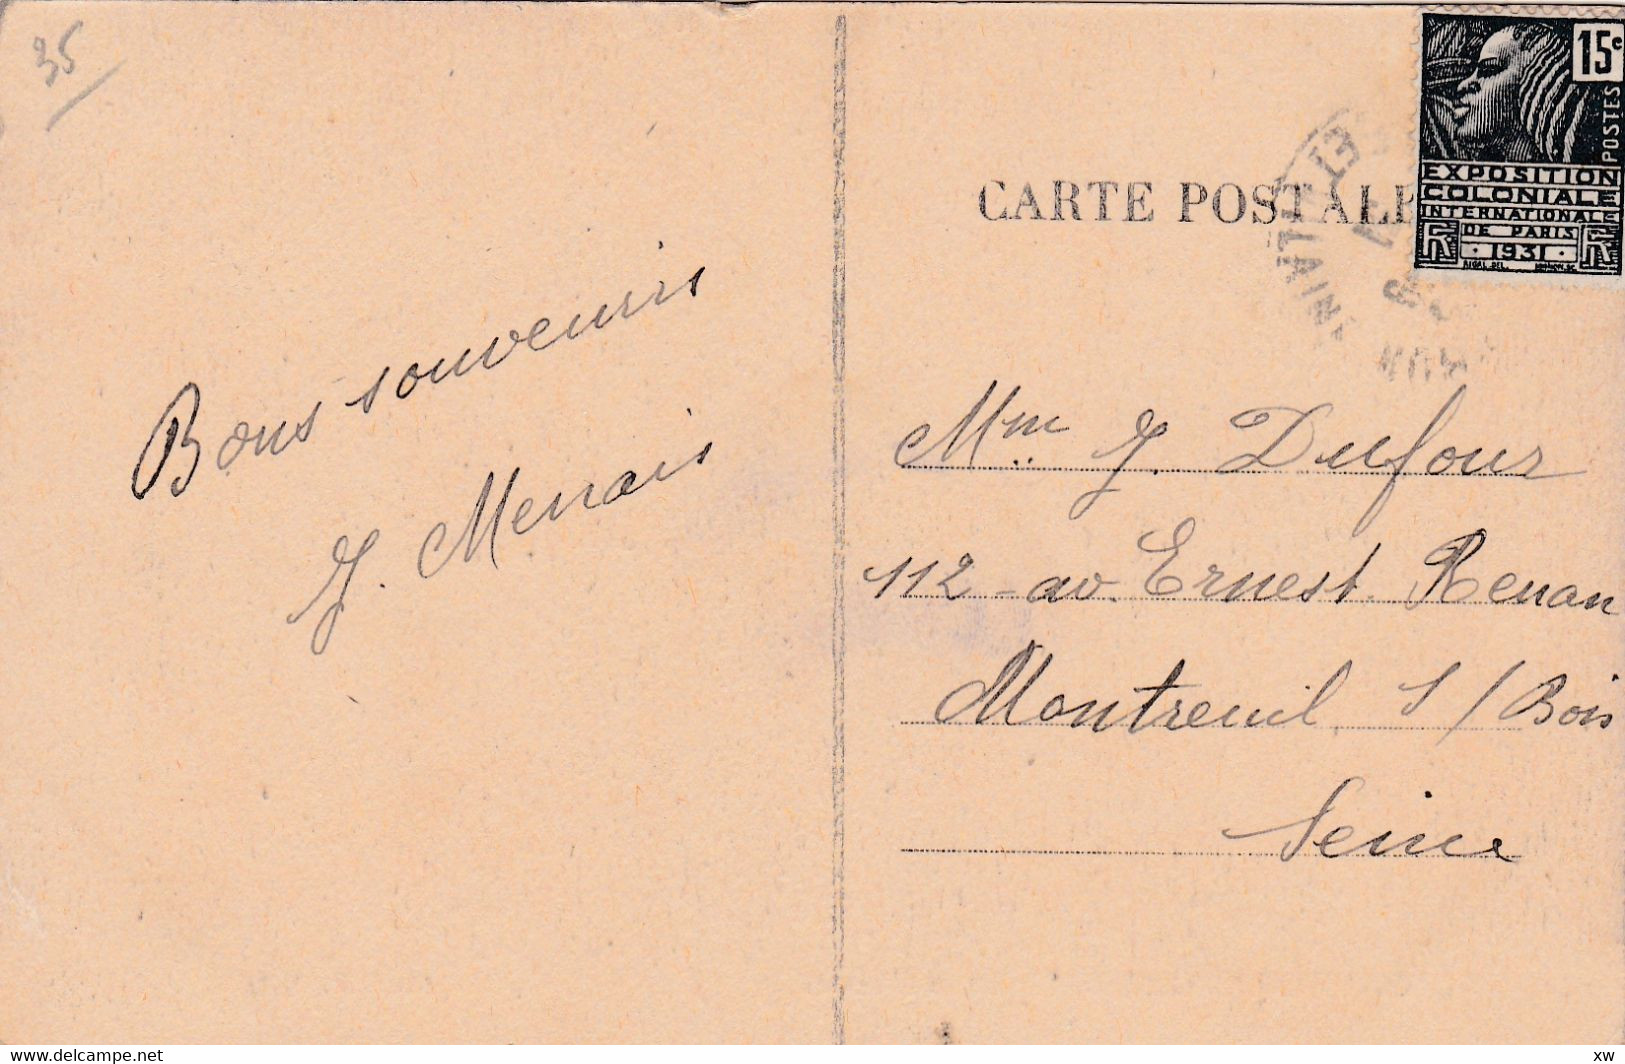 35
Bons souvenirs
J. Menais
CARTE POSTALE
15c
POSTES
EXPOSITION
COLONIALE
INTERNATIONALE
DE PARIS
1931
RF RF
Mme J. Dufour
112 - av. Ernest Renan
Montreuil s/Bois
Seine
www.delcampe.net
xw